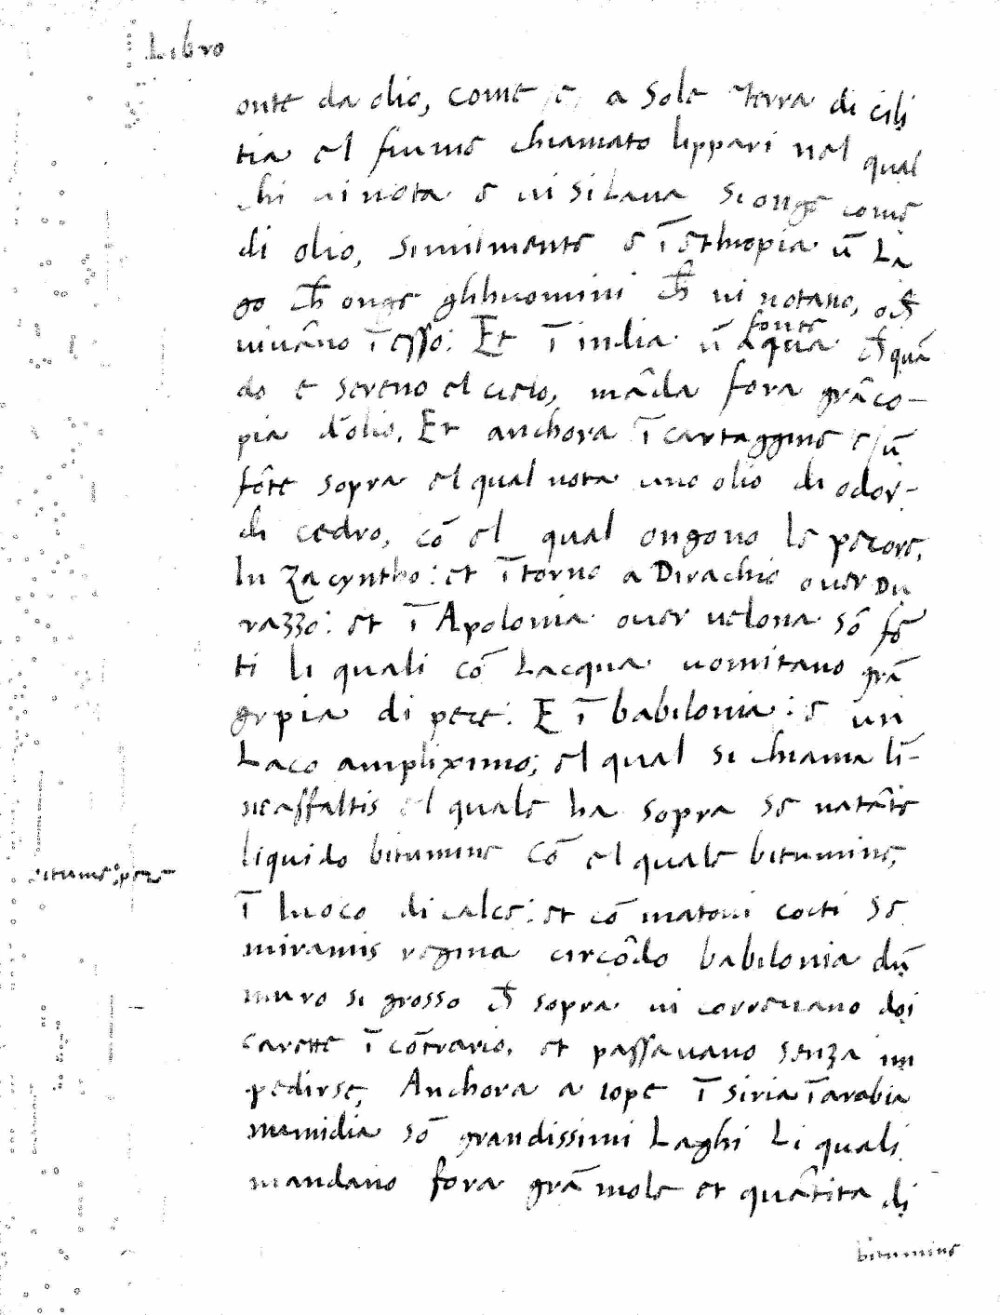 Libro
onte da olio, come e, a Sole terra di cili
tia el fiume chiamato lippari nel qual
chi vi nota e vi si laua si onge come
di olio, similmente e ī ethiopia ū La
go ch̄ onge glihuomini ch̄ vi notano, o ch̄
viuâno ī esso: Et ī india ū fonte
aqua ch̄ quā
do e sereno el cielo, māda fora grā co-
pia d'olio. Et anchora ī cartaggine e ū
fōte sopra el qual nota uno olio di odor-
di cedro, cō el qual ongono le pecore,
In Zacyntho: et ītorno a Dirachio ouer Du
razzo: et ī Apolonia ouer uelona sō fō
ti li quali cō Lacqua uomitano grā
copia di pece. E ī babilonia: e un
Laco ampliximo; el qual si chiama li-
neasfaltis el quale ha sopra se natāte
liquido bitumine Cō el quale bitumine,
bitume: pece
ī luoco di calce: et cō matoni cocti Se
miramis regina circōdo babilonia dū
muro si grosso ch̄ sopra vi correuano doi
carette ī cōtrario, et passauano senza im
pedirse, Anchora a iope ī siria ī arabia
numidia sō grandissimi Laghi Li quali
mandano fora grā mole et quātita di
bitumine